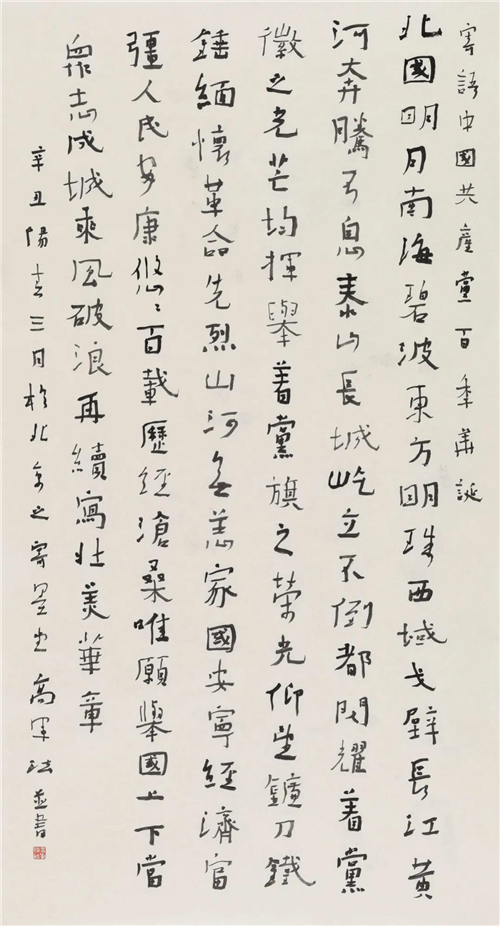 寄語中國共產黨百年華誕
北國明月南海碧波東方明珠西域戈壁長江黃
河奔騰不息泰山長城屹立不倒都閃耀着黨
徽之光芒均揮舉着黨旗之榮光仰望鐮刀鐵
錘緬懷革命先烈山河無恙家國安寧經濟富
彊人民安康悠悠百載歷經滄桑唯願舉國上下當
眾志成城乘風破浪再續寫壯美華章
辛丑陽春三月於北京之寄墨堂高軍法並書